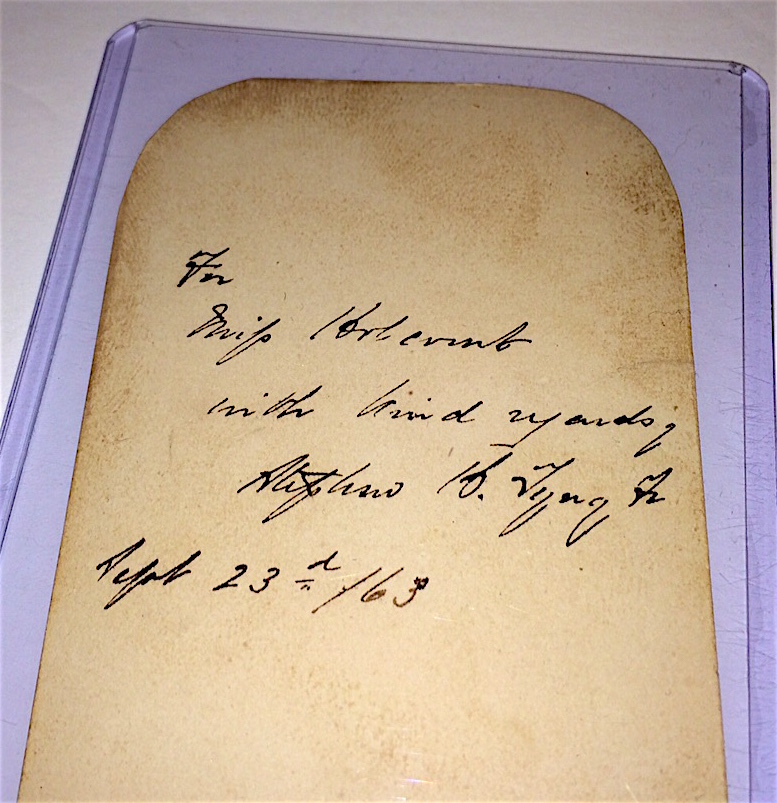 For
Miss Holcomb
with kind regards of
Stephen H. Tyng Jr
Sept 23d /63